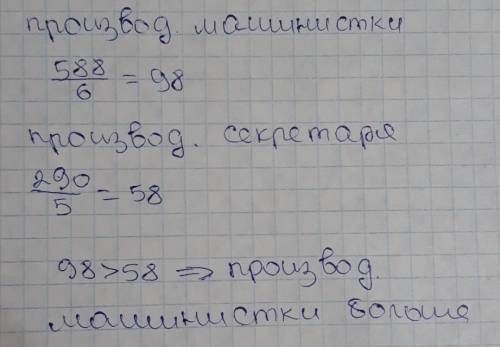 производ. машинистки
588/6 = 98
производ. секретаря
290/5 = 58
98>58 => производ.
машинистки больше